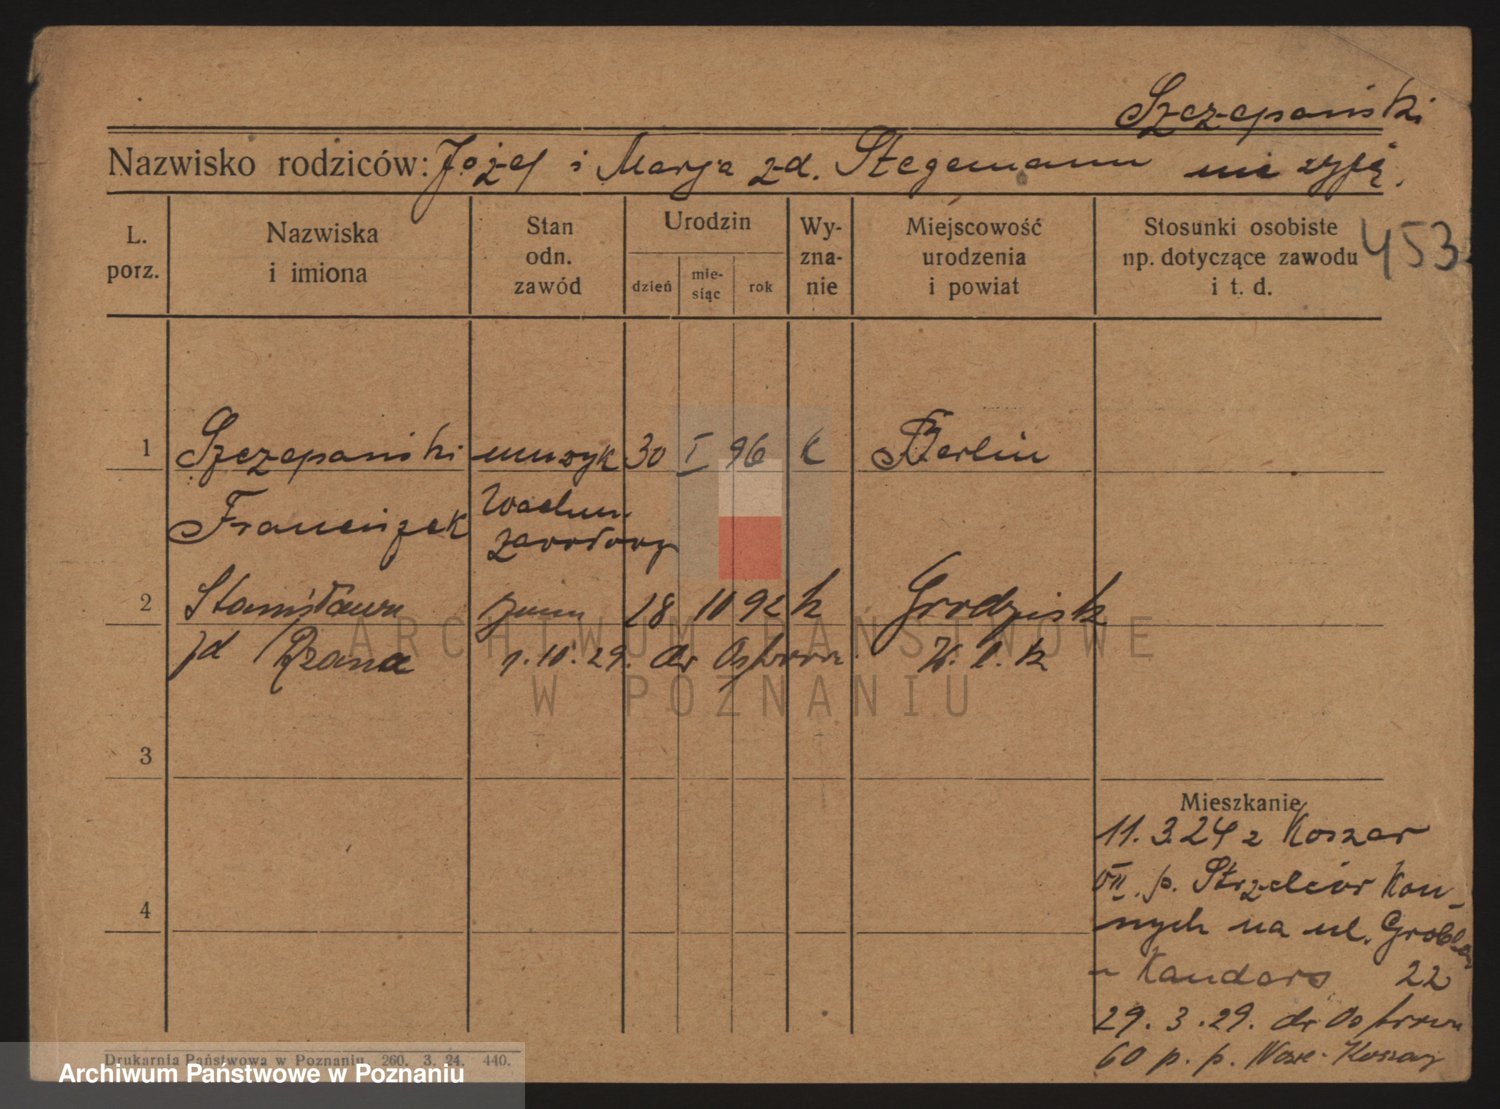 Szczepański
Nazwisko rodziców: Józef i Marja zd. Stegemann nie żyją.
L. porz.
Nazwiska i imiona
Stan odn. zawód
Urodzin
dzień
mie- siąc
rok
Wy- zna- nie
Miejscowość urodzenia i powiat
Stosunki osobiste np. dotyczące zawodu i t. d.
453
1 Szczepański muzyk 30 I 96 k Berlin
Franciszek Wachm. zawodowy
2 Stanisława żona 28 10 92 k Grodzisk
zd 1.10.29. do Ostrowa W. l. k
3
4
Mieszkanie
11.3.24 z Koszar
VII. p. Strzelców Kon-
nych na ul. Grobla
22
29.3.29. do Ostrowa
60 p. p. Nowe-Koszary
Drukarnia Państwowa w Poznaniu 260. 3. 24. 440.
ARCHIWUM PAŃSTWOWE
W POZNANIU
Archiwum Państwowe w Poznaniu